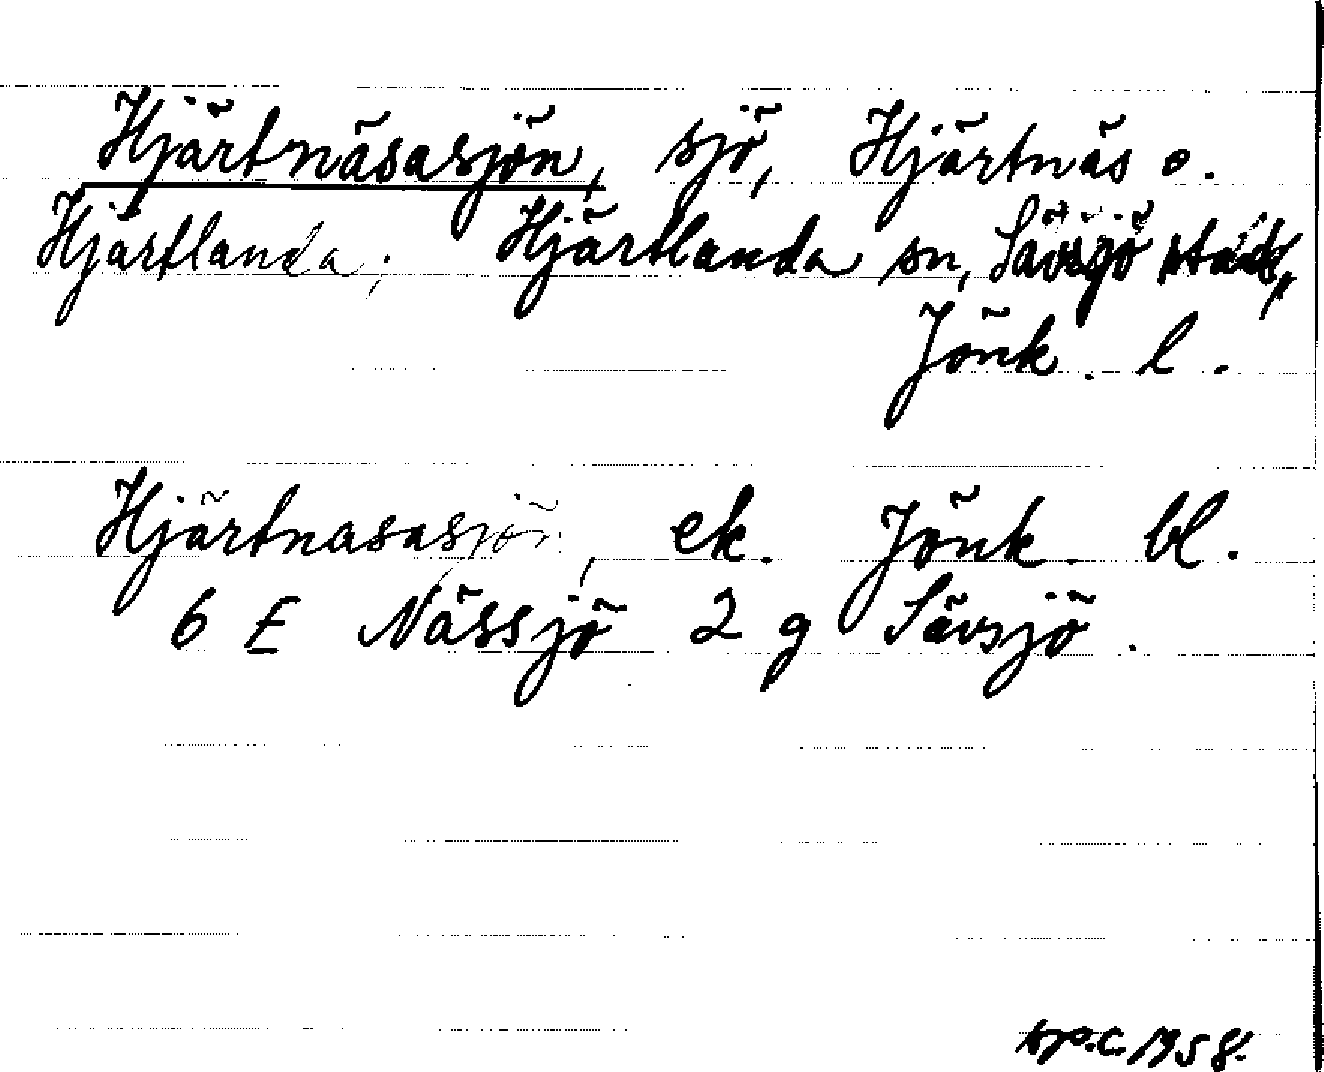 Hjärtnäsasjön, sjö, Hjärtnäs o.
Hjärtlanda, Hjärtlanda sn, Sävsjö stad,
Jönk. l.
Hjärtnasasjön, ek. Jönk. bl.
6 E Nässjö 2 g Sävsjö.
1958.